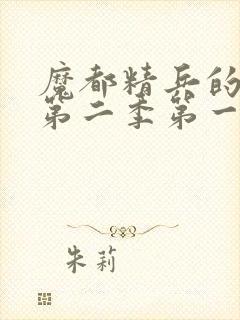 魔都精兵的
第二季第一
朱莉